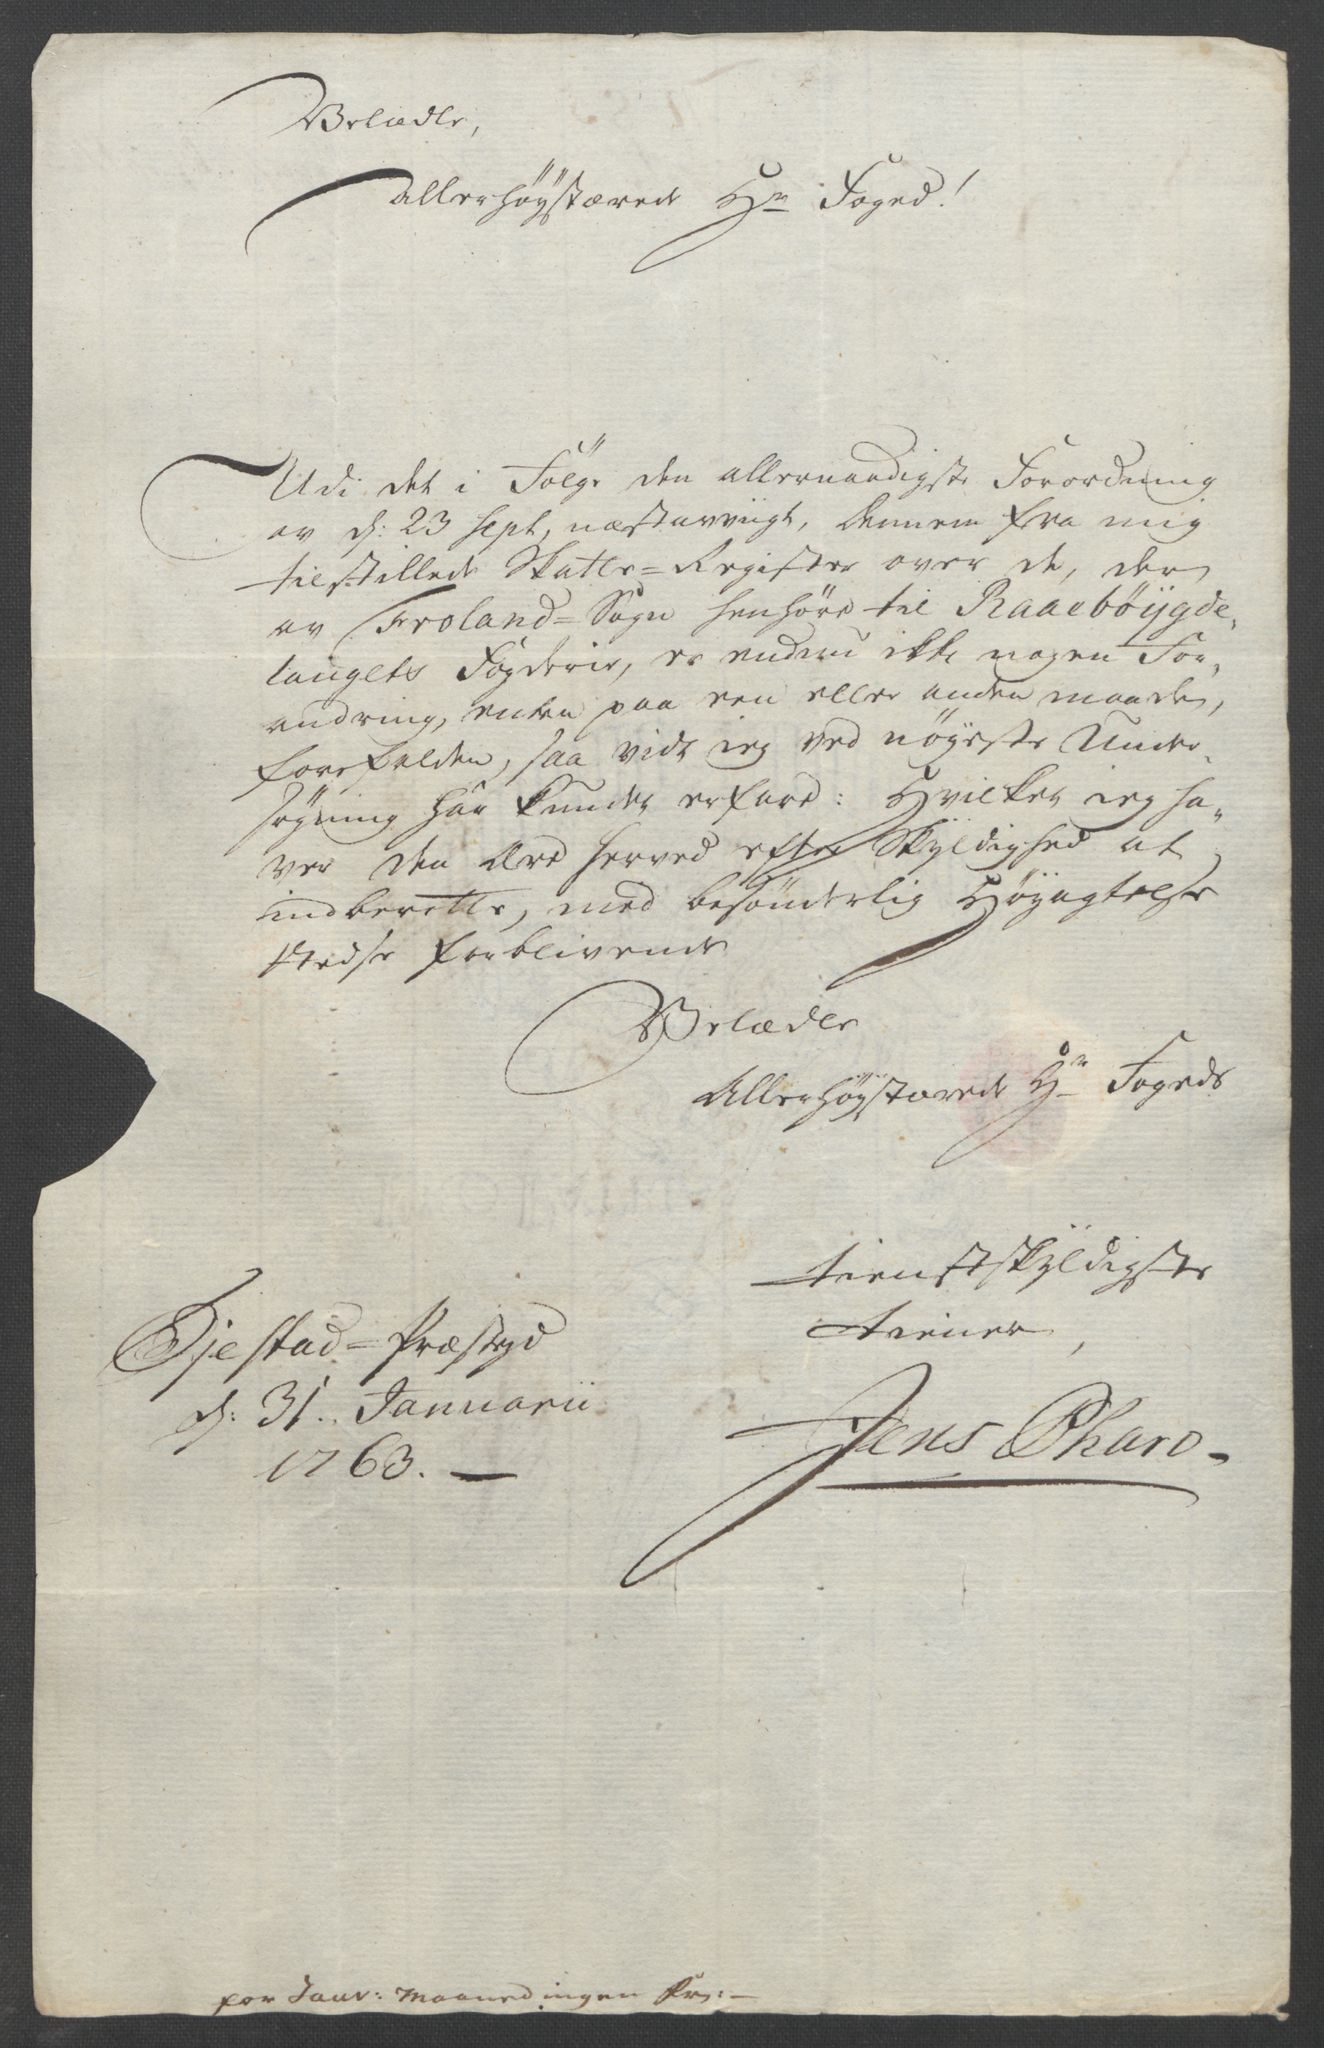 Velædle,
Allerhøystærede Hr Foged!
Udi det i Følge den allernaadigste Forordning
av d: 23 Sept, næstavvigt, Dennem fra mig
tilstillede Skatte=Register over de, der
av Froland=Sogn henhöre til Raaebøygde-
laugets Fogderie, er endnu ikke nogen For-
andring, enten paa een eller anden maade,
forefalden, saa vidt ieg ved nøyeste Under-
søgning har kundet erfare: Hvilket ieg ha-
ver den Ære herved efter Skyldighed at
indberette, med besönderlig Høyagtelse
stedse forblivende
Velædle
Allerhøystærede Hr Fogeds
tienstskyldigste
tiener,
Øjestad=Præstgd
d: 31. Januarii
1763.
Jens Pharo
for Janv: Maaned ingen